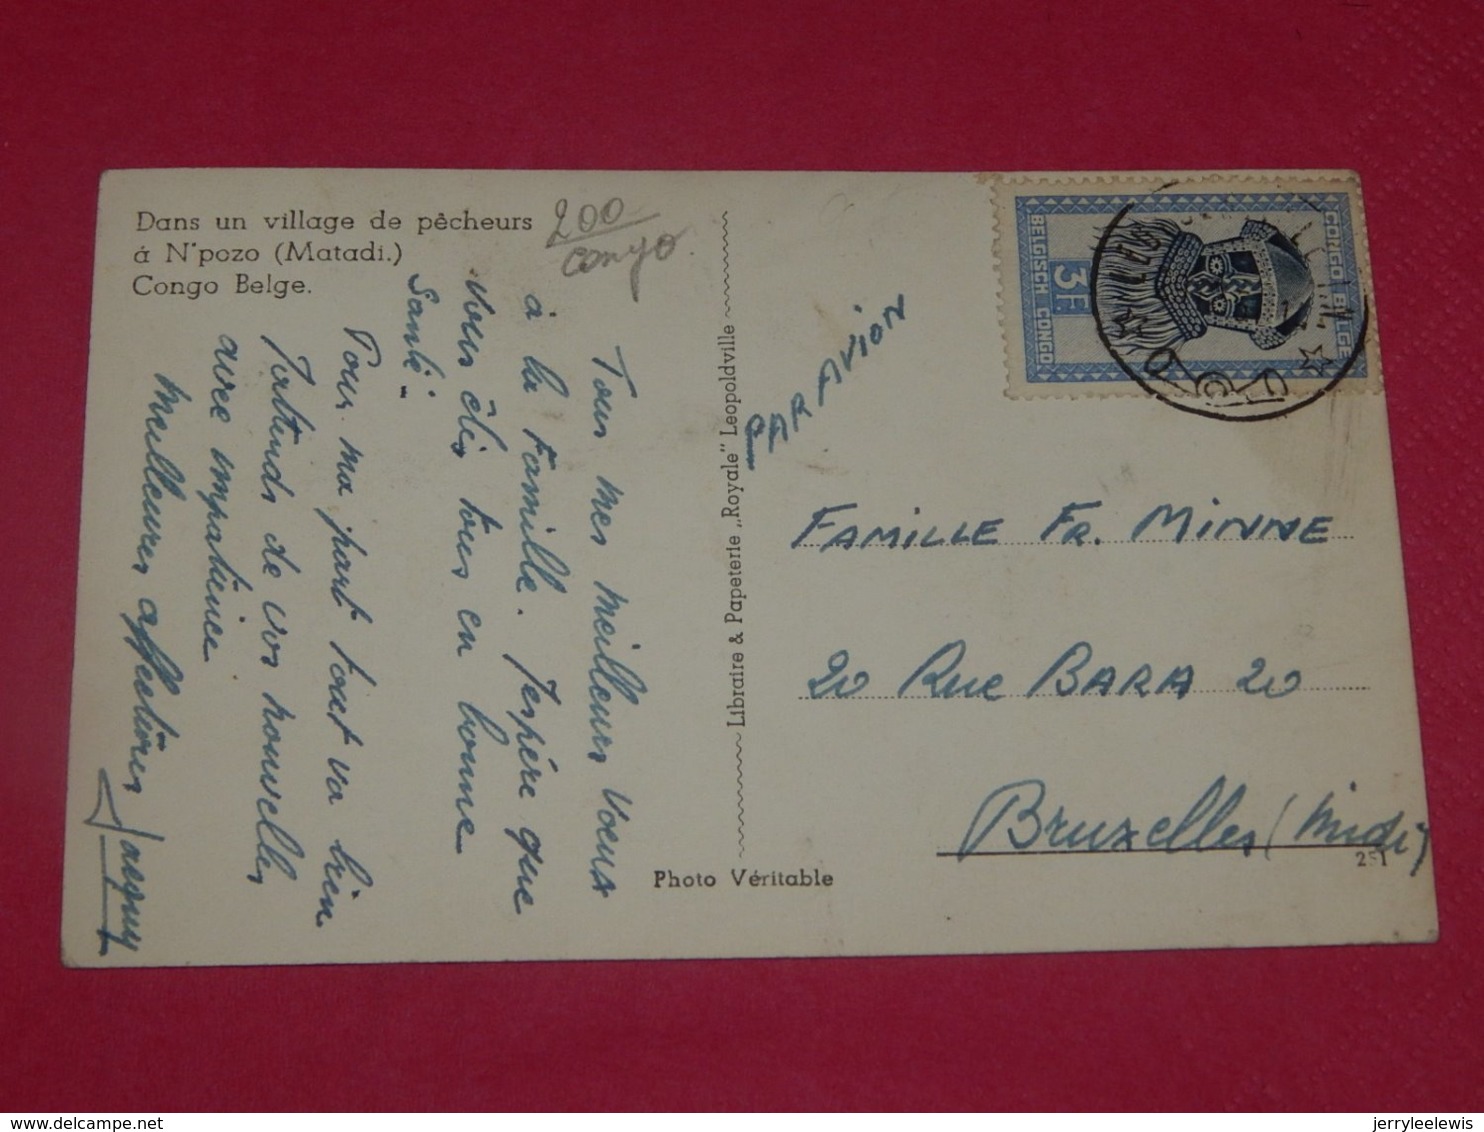 Dans un village de pêcheurs
á N'pozo (Matadi.)
Congo Belge.
200
Congo
Tous mes meilleurs Vœux
à la Famille. J'espère que
vous êtes tous en bonne
Santé.
Pour ma part tout va bien
J'attends de vos nouvelles
avec impatience
Meilleures affections
Jacquy
Libraire & Papeterie „Royale" Leopoldville
Photo Véritable
CONGO BELGE
BELGISCH CONGO
3F.
PAR AVION
FAMILLE FR. MINNE
20 Rue BARA 20
Bruxelles (Midi)
251
delcampe.net
jerryleelewis